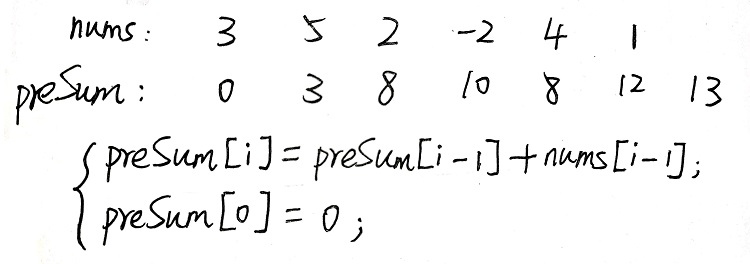 nums: 3 5 2 -2 4 1
preSum: 0 3 8 10 8 12 13
preSum[i]=preSum[i-1]+nums[i-1];
preSum[0]=0;